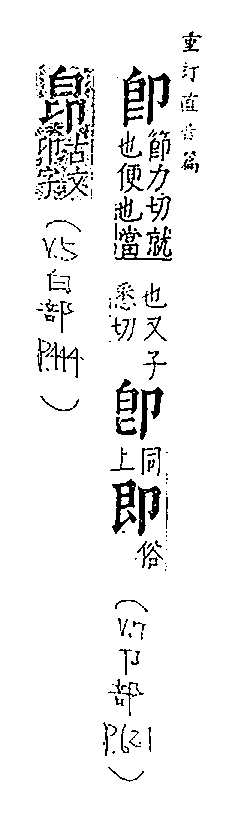 重訂直音篇
卽 節力切就也便也當也又子悉切 皍 同上 即 俗 (V.7 卩部 P.621)
古文印字 (V.5 白部 P.444)